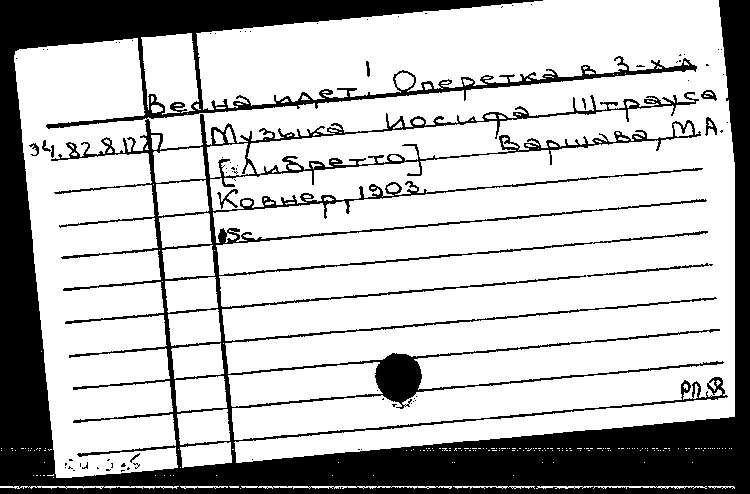 Весна идет! Оперетка в 3-х д.
34.82.8.1227 Музыка Иосифа Штрауса
[Либретто]. Варшава, М.А.
Ковнер, 1903.
15с.